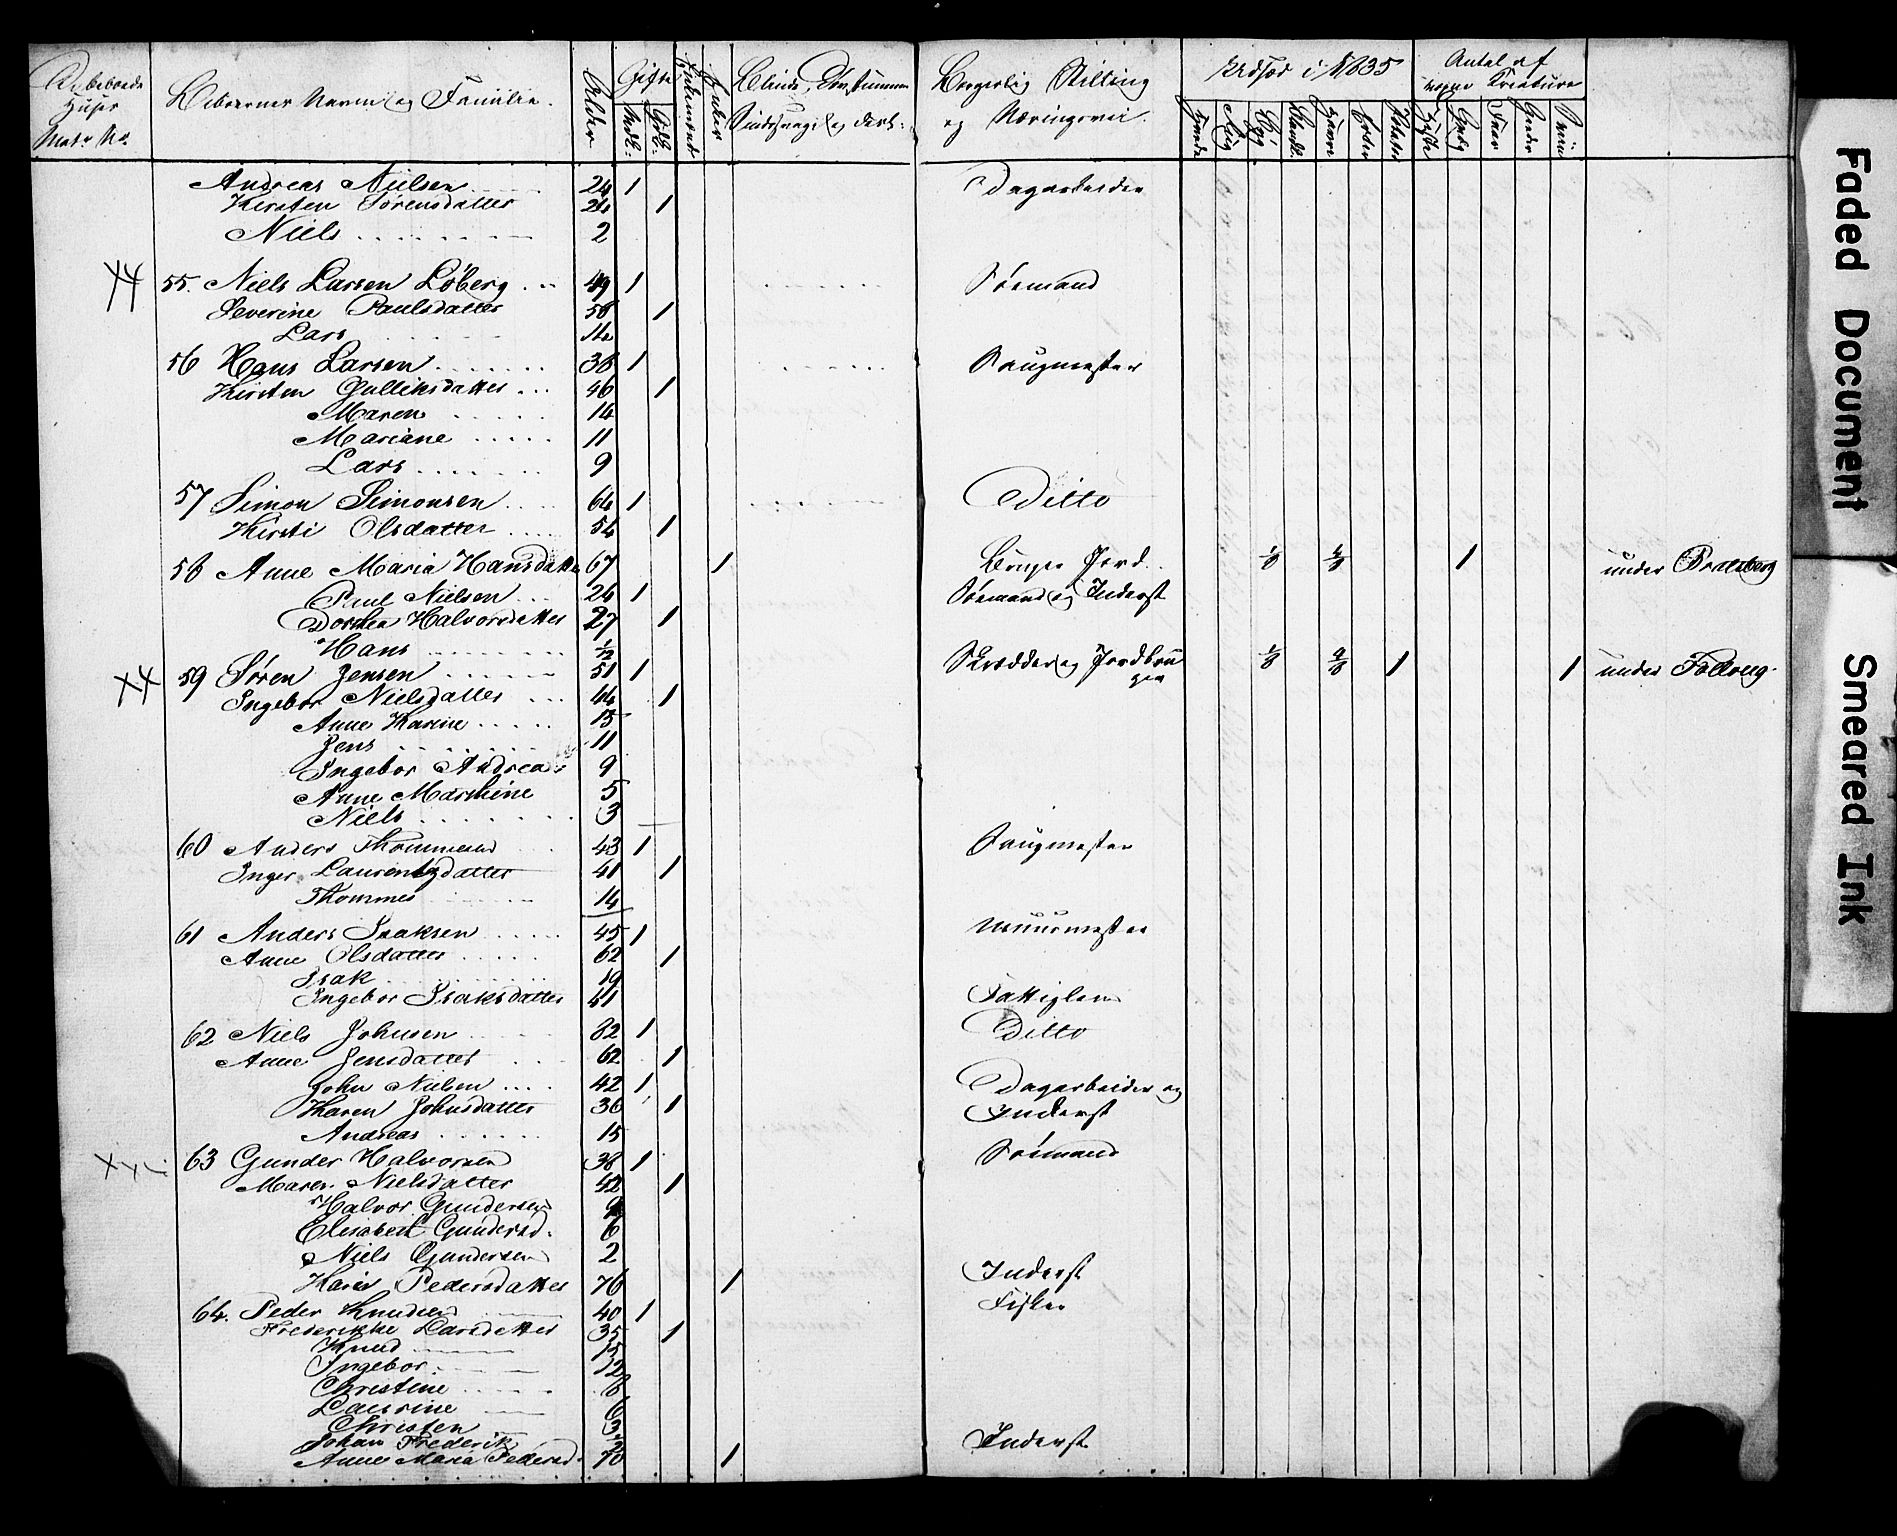 Bebeboede Huser Matr No. Beboernes Navn og Familie. Alder Gifte Mdk: Qvk: Enker Blinde, Døvstumme Sindssvage og deres: Borgerlig Stilling og Næringsvei. Udsæd i 1835 Hvede Rug Byg Bland: Havre Erter Potet: Antal af vægne Kreature Heste Qvæg Faar Geder Sviin
Andreas Nielsen 24 1 Dagarbeider
Kirsten Sørensdatter 24 1
Niels 2
55. Niels Larsen Løberg 49 1 Søemand
Severine Paulsdatter 58 1
Lars 14
56 Hans Larsen 38 1 Saugmester
Kirsten Gulliksdatter 46 1
Maren 14
Mariane 11
Lars 9
57 Simon Simonsen 64 1 Ditto
Kirsti Olsdatter 54 1
58 Anne Maria Hansdatter 67 1 Bruger Jord 1/8 4/8 1 under
Paul Nielsen 26 1 Søemand og Inderst
Dorthea Halvorsdatter 27 1
Hans 1/12
59 Søren Jensen 51 1 Skrædder og Jordbru 1/8 1 1 under
ger
Ingebor Nielsdatter 44 1
Anne Karine 15
Jens 11
Ingebor Andrea 9
Anne Marthine 5
Niels 3
60 Anders Thommesen 43 1 Saugmester
Inger Laurentzdatter 41 1
Thommes 14
61 Anders Isaksen 45 1 Muurmester
Anne Olsdatter 62 1
Isak 19
Ingebor Isaksdatter 41 Fattiglem
62 Niels Johnsen 82 1 Ditto
Anne Jensdatter 62 1
John Nielsen 42 1 Dagarbeider og
Karen Johnsdatter 36 1 Inderst
Andreas 15
63 Gunder Halvorsen 38 1 Søemand
Maren Nielsdatter 42 1
Halvor Gundersen 9
Elisabeth Gundersd. 6
Niels Gundersen 2
Karen Pedersdatter 76 1 Inderst
64. Peder Knudsen 40 1 Fisker
Frederikke Larsdatter 35 1
Knud 15
Ingebor 12
Christine 8
Laurine 6
Christen 3
Johan Frederik
Anne Maria Pedersd. 70 1 Inderst
Faded Document
Smeared Ink